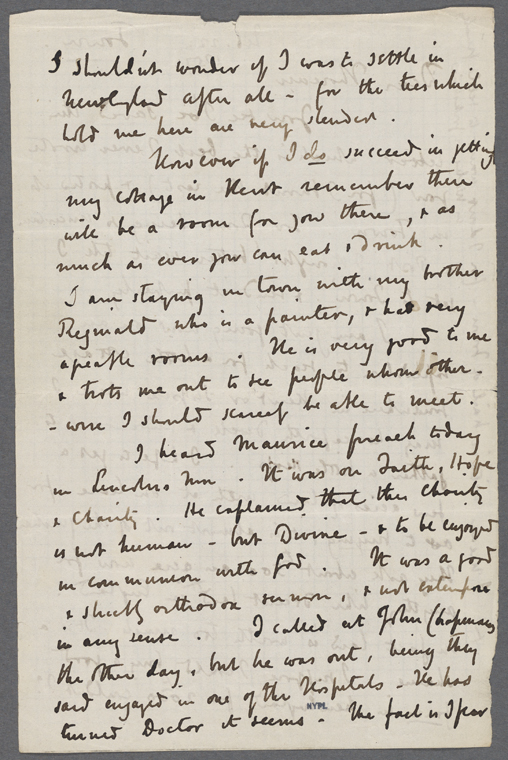 I shouldn't wonder if I was to settle in
New England after all - for the ties which
hold me here are very slender.
However if I do succeed in getting
my cottage in Kent remember there
will be a room for you there, & as
much as ever you can eat & drink.
I am staying in town with my brother
Reginald who is a painter, & has very
apeable rooms. He is very good to me
& trots me out to see people whom other-
-wise I should scarcely be able to meet.
I heard Maurice preach today
in Lincolns Inn. It was on Faith, Hope
& Charity. He explained that this Charity
is not human - but Divine - & to be enjoyed
in communion with God. It was a good
& strictly orthodox sermon, & not extempore
in any sense. I called at John Chapmans
the other day, but he was out, being they
said engaged in one of the Hospitals - He has
turned Doctor it seems - The fact is I fear
NYPL